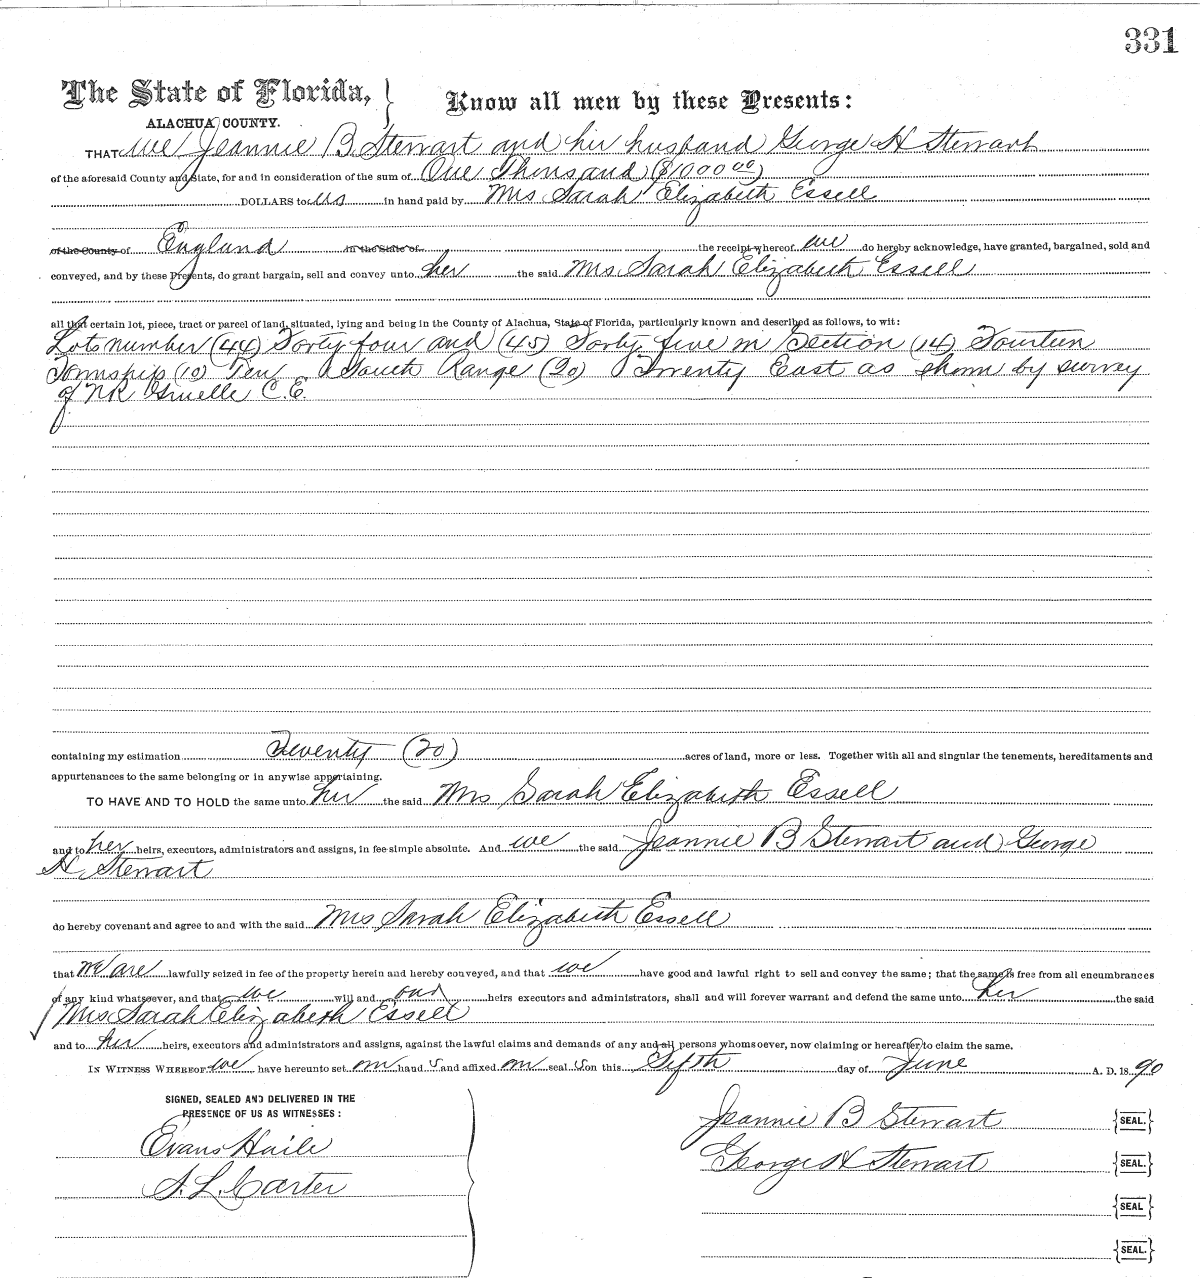 331
The State of Florida, } Know all men by these Presents:
ALACHUA COUNTY.
THAT we Jeannie B. Stewart and her husband George H Stewart
of the aforesaid County and State, for and in consideration of the sum of One Thousand ($1000 00)
DOLLARS to us in hand paid by Mrs Sarah Elizabeth Essell
of the County of England in the State of the receipt whereof we do hereby acknowledge, have granted, bargained, sold and
conveyed, and by these Presents, do grant bargain, sell and convey unto her the said Mrs Sarah Elizabeth Essell
all that certain lot, piece, tract or parcel of land, situated, lying and being in the County of Alachua, State of Florida, particularly known and described as follows, to wit:
Lots number (44) Forty four and (45) Forty five in Section (14) Fourteen
Township (10) Ten South Range (20) Twenty East as shown by survey
of NR Gruelle C.E.
containing my estimation Twenty (20) acres of land, more or less. Together with all and singular the tenements, hereditaments and
appurtenances to the same belonging or in anywise appertaining.
TO HAVE AND TO HOLD the same unto her the said Mrs Sarah Elizabeth Essell
and to her heirs, executors, administrators and assigns, in fee simple absolute. And we the said Jeannie B Stewart and George
H Stewart
do hereby covenant and agree to and with the said Mrs Sarah Elizabeth Essell
that we are lawfully seized in fee of the property herein and hereby conveyed, and that we have good and lawful right to sell and convey the same; that the same is free from all encumbrances
of any kind whatsoever, and that we will and our heirs executors and administrators, shall and will forever warrant and defend the same unto her the said
Mrs Sarah Elizabeth Essell
and to her heirs, executors and administrators and assigns, against the lawful claims and demands of any and all persons whomsoever, now claiming or hereafter to claim the same.
IN WITNESS WHEREOF we have hereunto set our hand s and affixed our seal s on this Fifth day of June A. D. 18 90
SIGNED, SEALED AND DELIVERED IN THE
PRESENCE OF US AS WITNESSES:
Jeannie B Stewart {SEAL.}
Evans Haile
George H Stewart {SEAL.}
S. L. Carter
{SEAL}
{SEAL.}